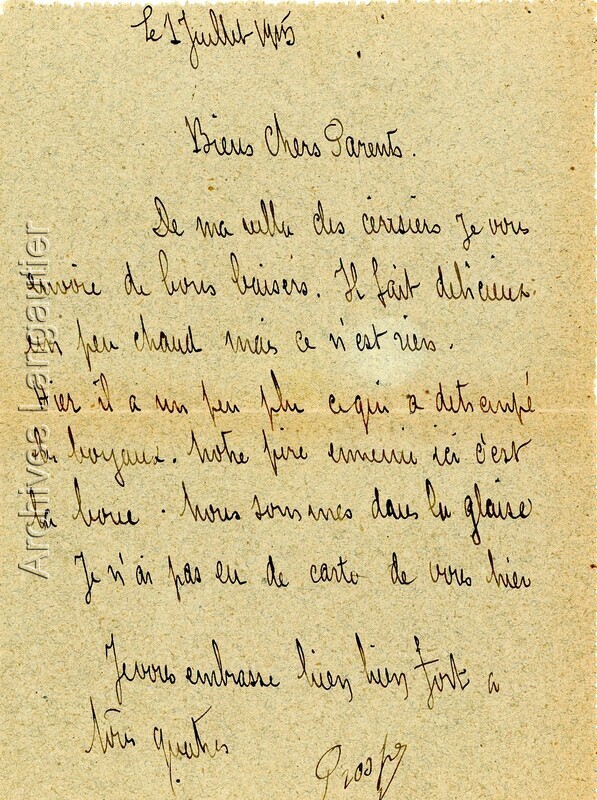 Le 1 Juillet 1915
Biens Chers Parents.
De ma villa des cerisiers Je vous
envoie de bons baisers. Il fait delicieux
un peu chaud mais ce n'est rien.
Hier il a un peu plu ce qui a detrempé
les boyaux. Notre pire ennemi ici c'est
la boue. Nous sommes dans la glaise
Je n'ai pas eu de carte de vous hier
Je vous embrasse bien bien fort a
tous quatres
Prosp
Archives Langautier